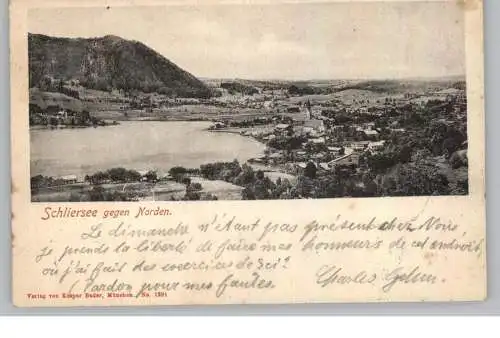 Schliersee gegen Norden.
Le dimanche n'étant pas présent chez Noïré,
je prends la liberté de faire mes honneurs de cet endroit,
où j'ai fait des exercices de Sci?
(Pardon pour mes fautes. Charles
Verlag von Kaspar Bader, München, No. 1391